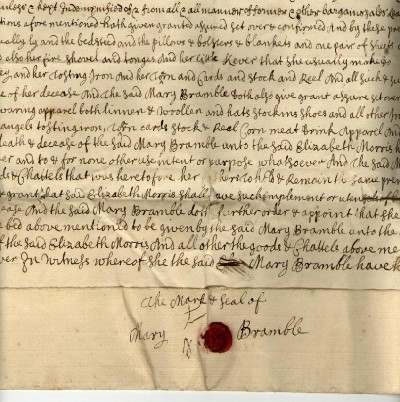 kept Indempnified of & from all & all manner of former & other bargaines sales
tions afore mentioned hath given granted assured set over & confirmed And by these pre
ually by and the bedsted and the pillows & bolsters & blankets and one pair of sheets
also her fire shovel and tonges And her little Kever that she usually makes
ey and her Tosting Iron And her Torn and Cards and stock and Reel And all such &
e of her decease And the said Mary Bramble doth also give grant assure set over
waring apparel both linnen & woollen and hats stockins shoes and all other
tosting iron, Torn cards stock & Reel Corn meat Drink Apparel And
death & decease of the said Mary Bramble unto the said Elizabeth Morris h
her and to & for none other use intent or purpose whatsoever And the said M
ds & Chattels that were heretofore her & Remain the same
grant that said Elizabeth Morris shall have such implement or
ease And the said Mary Bramble doth further order & appoint that she
e bed above mentioned to be given by the said Mary Bramble unto the
f the said Elizabeth Morris And all other the goods & Chattels above me
ver In Witness whereof She the said Mary Bramble have h
The Mark & Seal of
Mary Bramble